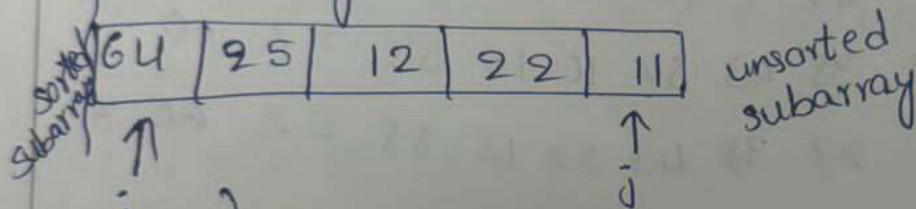 sorted
subarray
64 25 12 22 11
unsorted
subarray
i j